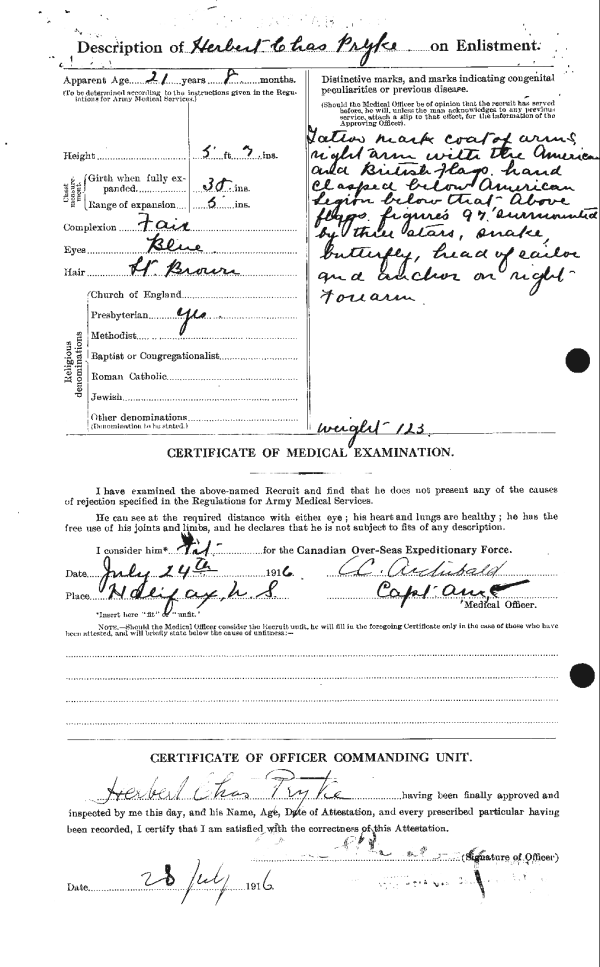 Description of Herbert Chas Pryke on Enlistment.
Apparent Age 21 years 8 months.
(To be determined according to the instructions given in the Regulations for Army Medical Services.)
Height 5 ft 7 ins.
Chest measurement.
Girth when fully expanded 38 ins.
Range of expansion 5 ins.
Complexion Fair
Eyes Blue
Hair Lt. Brown
Religious denominations
Church of England
Presbyterian yes
Methodist
Baptist or Congregationalist
Roman Catholic
Jewish
Other denominations
(Denomination to be stated.)
Distinctive marks, and marks indicating congenital
peculiarities or previous disease.
(Should the Medical Officer be of opinion that the recruit has served
before, he will, unless the man acknowledges to any previous
service, attach a slip to that effect, for the information of the
Approving Officer).
Tattoo mark coat of arms,
right arm with the American
and British flags. hand
clasped below American
Legion below that Above
flags. figures 97. surmounted
by three stars, snake,
butterfly, head of sailor
and anchor on right
Forearm.
weight 123.
CERTIFICATE OF MEDICAL EXAMINATION.
I have examined the above-named Recruit and find that he does not present any of the causes
of rejection specified in the Regulations for Army Medical Services.
He can see at the required distance with either eye; his heart and lungs are healthy; he has the
free use of his joints and limbs, and he declares that he is not subject to fits of any description.
I consider him* Fit for the Canadian Over-Seas Expeditionary Force.
Date July 24th 1916 CC. Archibald
Place Halifax, N. S Capt
Medical Officer.
*Insert here "fit" or "unfit."
NOTE.—Should the Medical Officer consider the Recruit unfit, he will fill in the foregoing Certificate only in the case of those who have
been attested, and will briefly state below the cause of unfitness:—
CERTIFICATE OF OFFICER COMMANDING UNIT.
Herbert Chas Pryke having been finally approved and
inspected by me this day, and his Name, Age, Date of Attestation, and every prescribed particular having
been recorded, I certify that I am satisfied with the correctness of this Attestation.
(Signature of Officer)
Date 28 July 1916